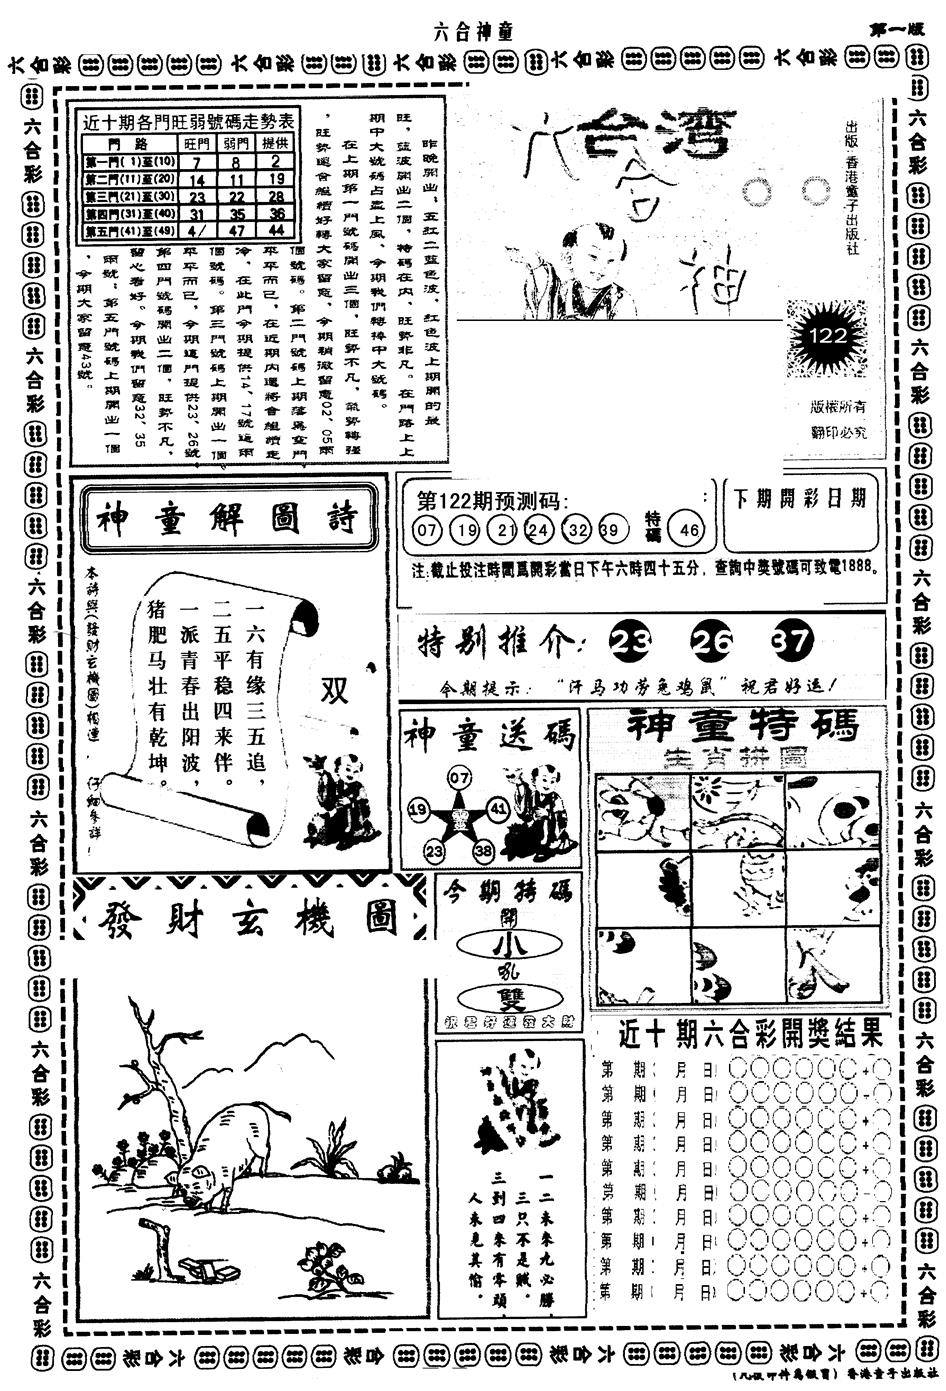 六合神童
第一版
近十期各門旺弱號碼走勢表
門 路 旺門 弱門 提供
第一門( 1)至(10) 7 8 2
第二門(11)至(20) 14 11 19
第三門(21)至(30) 23 22 28
第四門(31)至(40) 31 35 36
第五門(41)至(49) 4/ 47 44
昨晚開出,五紅二藍色波,紅色波上期開的最
旺,藍波開出二個,特碼在內,旺勢非凡。在門路上上
期中大號碼占盡上風,今期我們轉捧中大號碼。
在上期第一門號碼開出三個,旺勢不凡,氣勢轉強
,旺勢還會繼續好轉大家留意,今期稍微留意02、05兩
個號碼。第二門號碼上期落爲空門,
平平而已,在近期內還將會繼續走
冷,在此門今期提供14、17號這兩
個號碼。第三門號碼上期開出一個,
平平而已,今期這門提供23、26號
第四門號碼開出二個,旺勢不凡,
留心看好。今期我們留意32、35
兩號,第五門號碼上期開出一個
,今期大家留意43號。
六合
台湾
出版:香港童子出版社
122
版權所有
翻印必究
神童解圖詩
本詩與(發財玄機圖)相連,仔細參詳!
一六有缘三五追,
二五平稳四来伴。
一派青春出阳波,
猪肥马壮有乾坤。
双
第122期预测码:
07 19 21 24 32 39 特碼 46
下期開彩日期
注:截止投注時間爲開彩當日下午六時四十五分,查詢中獎號碼可致電1888。
特别推介: 23 26 37
今期提示:“汗马功劳兔鸡鼠”祝君好运!
神童送碼
07
19 靈 41
23 38
神童特碼
生肖拼圖
發財玄機圖
今期特碼
開
小
吼
雙
祝君好運發大財
一二未來九必勝,
三只不是贼。
三到四来有零頭,
人来見其愉。
近十期六合彩開獎結果
第 期( 月 日)
第 期( 月 日)
第 期( 月 日)
第 期( 月 日)
第 期( 月 日)
第 期( 月 日)
第 期( 月 日)
第 期( 月 日)
第 期( 月 日)
第 期( 月 日)
(凡復印件爲假冒) 香港童子出版社